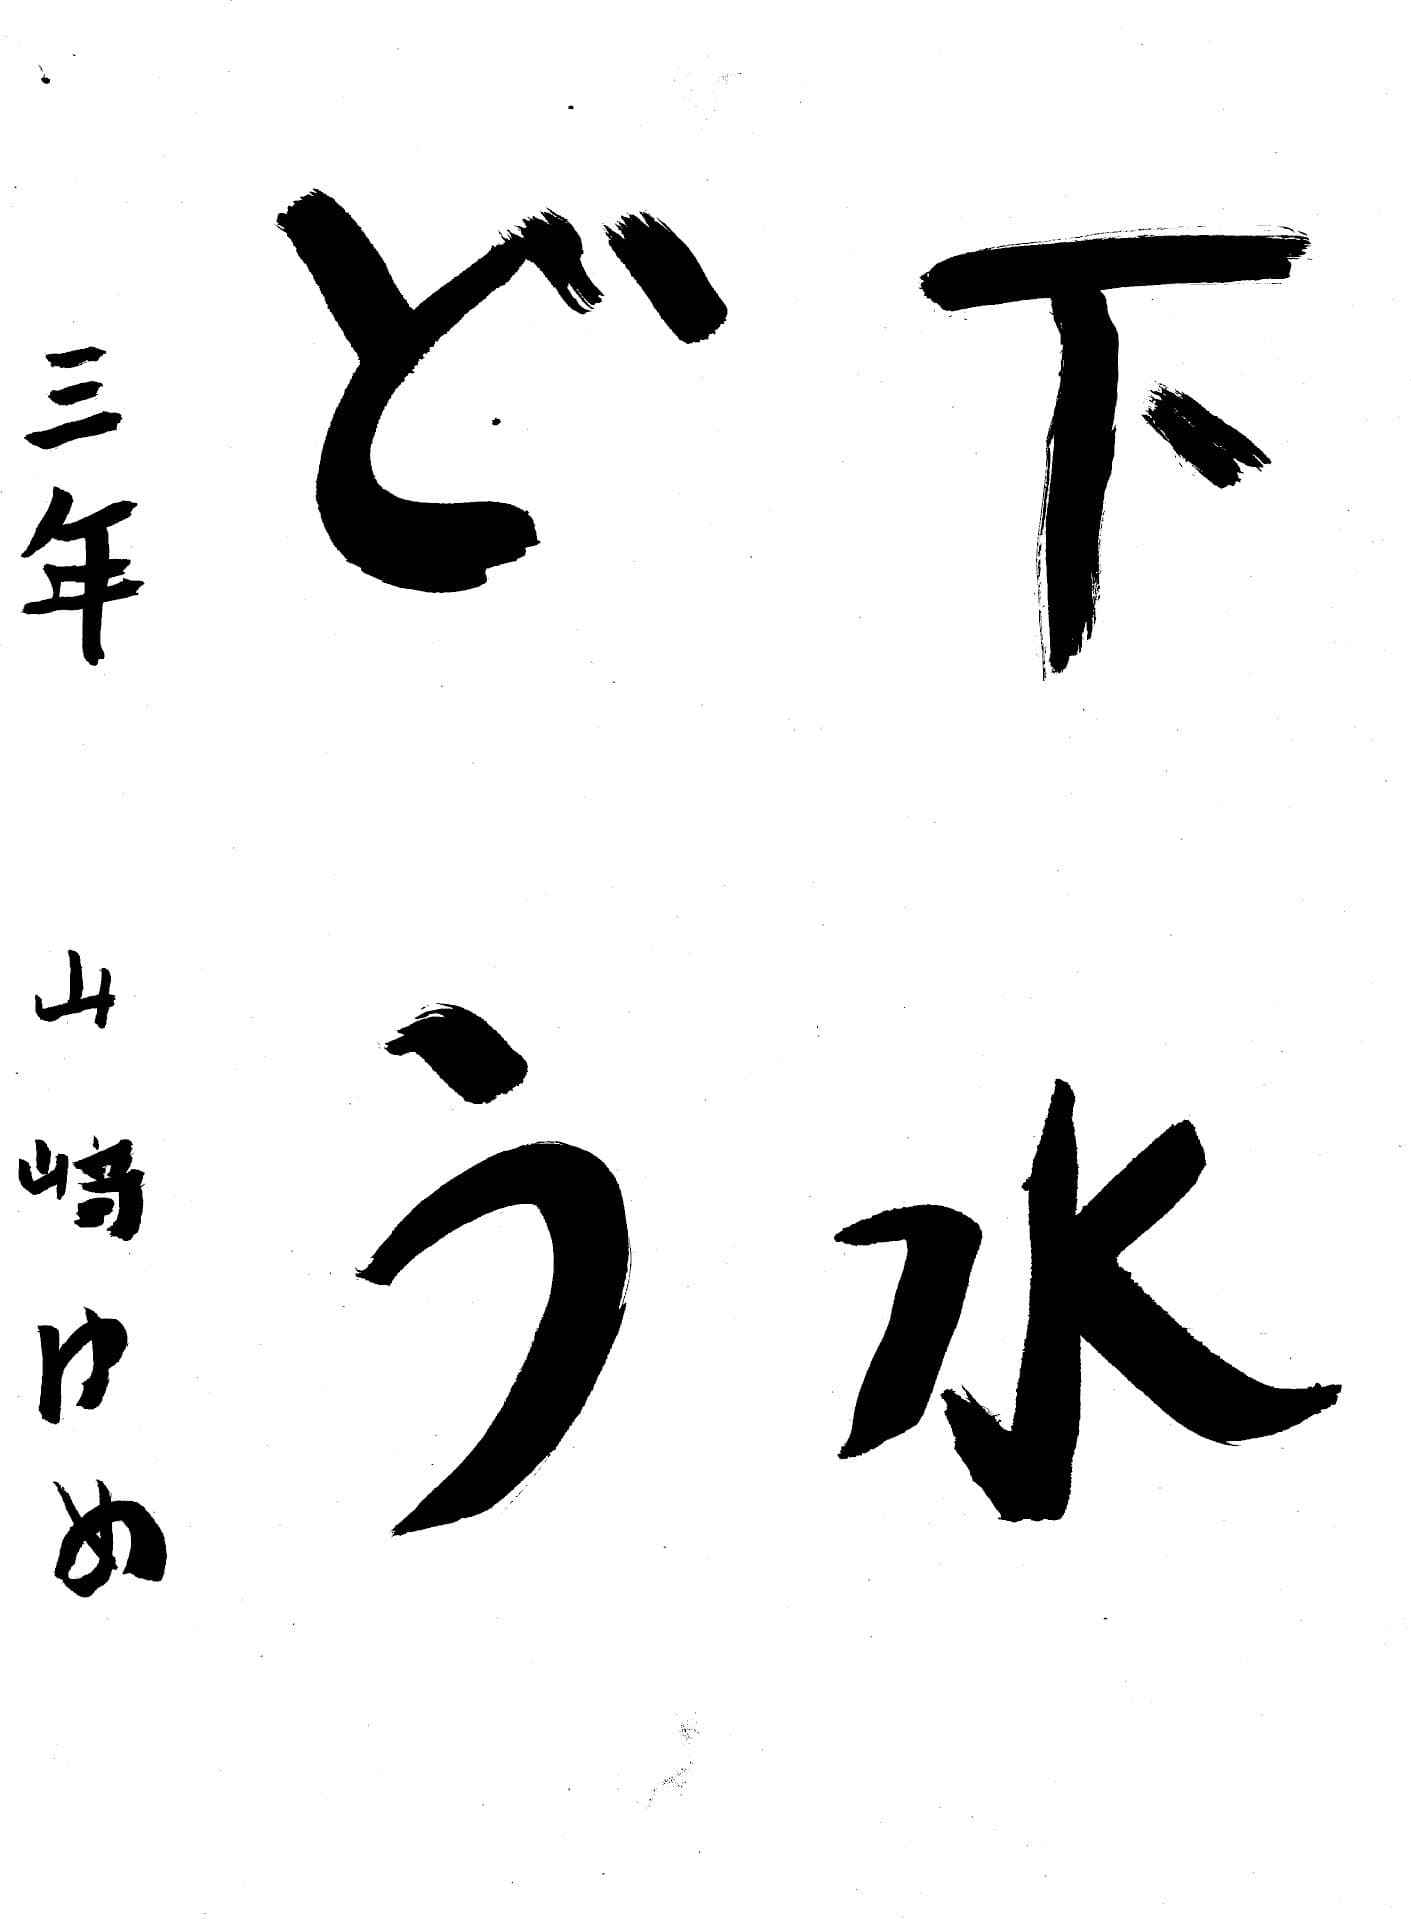 下水
どう
三年 山﨑ゆめ